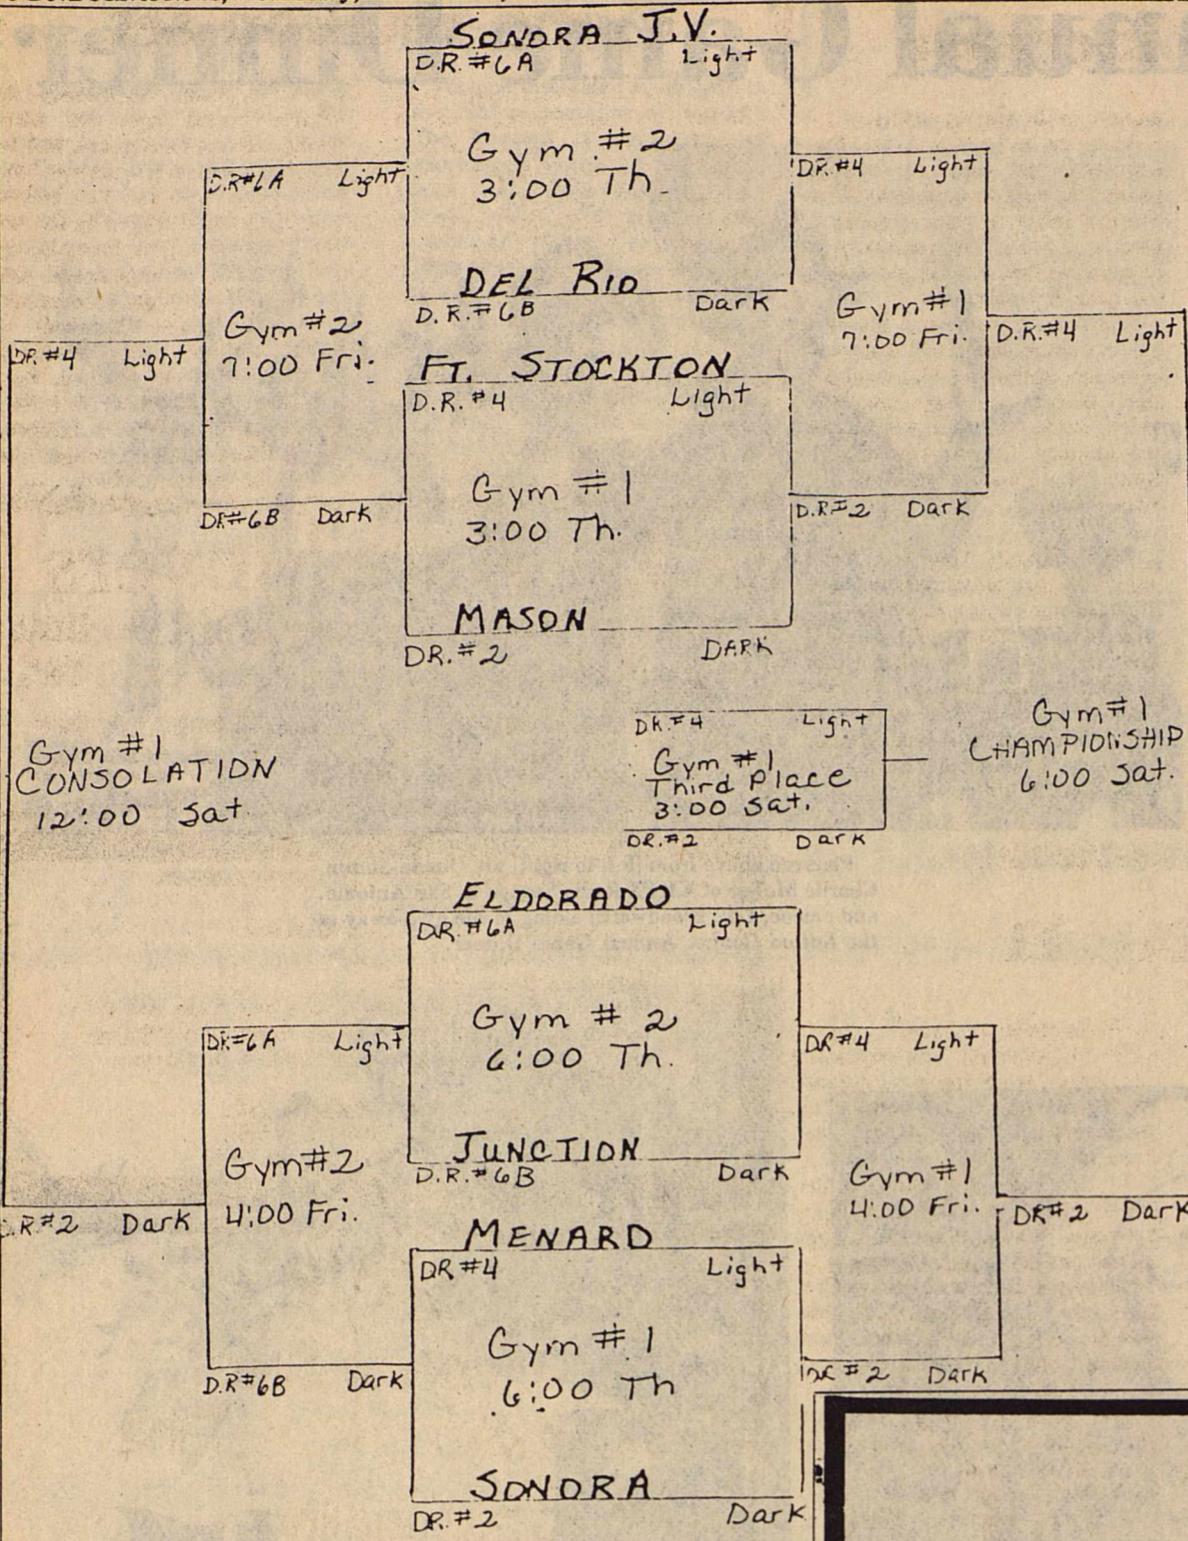 SONORA J.V.
D.R. #6A Light
Gym #2
3:00 Th.
DEL RIO
D.R. #6B Dark
D.R #6A Light
Gym #2
7:00 Fri.
DR #6B Dark
DR. #4 Light
Gym #1
7:00 Fri.
D.R #2 Dark
FT. STOCKTON
D.R. #4 Light
Gym #1
3:00 Th.
MASON
DR. #2 DARK
DR. #4 Light
D.R. #4 Light
Gym #1
CONSOLATION
12:00 Sat.
DR. #4 Light
Gym #1
Third Place
3:00 Sat.
DR. #2 Dark
Gym #1
CHAMPIONSHIP
6:00 Sat.
ELDORADO
D.R. #6A Light
Gym # 2
6:00 Th.
JUNCTION
D.R. #6B Dark
DR #6A Light
Gym #2
4:00 Fri.
D.R #6B Dark
DR #4 Light
Gym #1
4:00 Fri.
DR #2 Dark
D.R. #2 Dark
DR #2 Dark
MENARD
DR #4 Light
Gym # 1
6:00 Th
SONORA
DR. #2 Dark